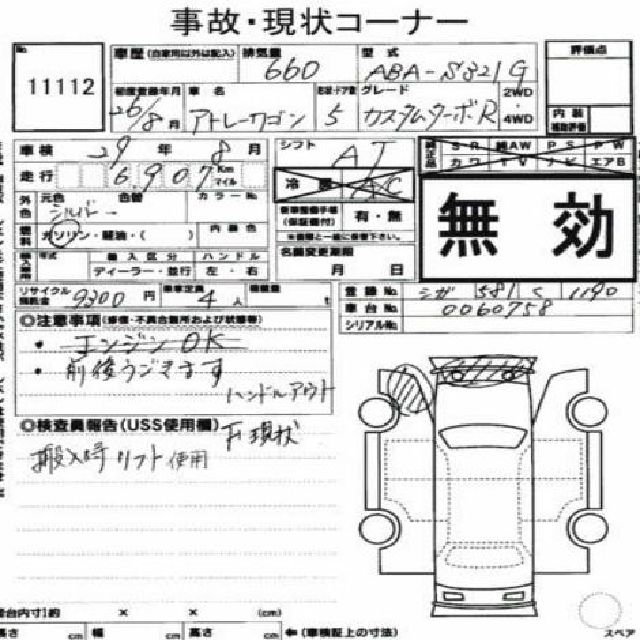 事故・現状コーナー
No.
11112
車歴 (自家用以外は記入)
排気量
660
型式
ABA-S321G
評価点
初度登録年月
26/8月
車名
アトレーワゴン
ドア数
5
グレード
カスタムターボR
2WD
・
4WD
内装
補助評価
車検
29年8月
シフト
AT
純正品
SR
純AW
PS
PW
カワ
TV
ナビ
エアB
走行
6,907
Km
マイル
冷房
AC
外色
元色
色替
カラーNo.
シルバー
新車整備手帳
(保証書付)
有・無
※書類と一緒に保管下さい。
無効
燃料
ガソリン・軽油・( )
内装色
名義変更期限
月 日
輸入車用
年式
輸入区分
ハンドル
ディーラー・並行
左・右
リサイクル
預託金
9300円
乗車定員
4人
積載量
t
登録No.
シガ 581 く 1190
車台No.
0060758
シリアルNo.
◎注意事項(修復・不具合箇所および状態等)
・エンジンOK
・前後うごきます
ハンドルアウト
◎検査員報告(USS使用欄)
下現状
搬入時リフト使用
荷台内寸)約 × × (cm)
高さ cm 幅 cm 高さ cm
←(車検証上の寸法)
スペア